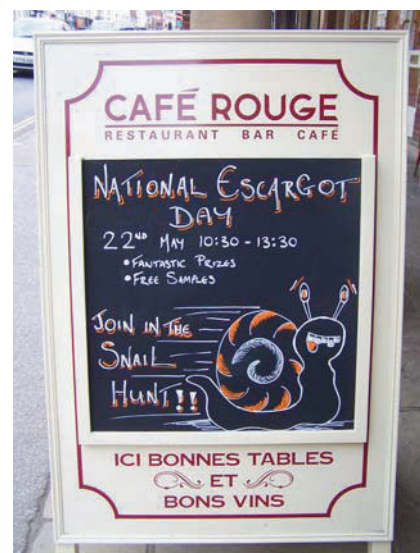 CAFÉ ROUGE
RESTAURANT BAR CAFÉ
NATIONAL ESCARGOT
DAY
22ND MAY 10:30-13:30
•FANTASTIC PRIZES
•FREE SAMPLES
JOIN IN THE
SNAIL
HUNT!!
ICI BONNES TABLES
ET
BONS VINS